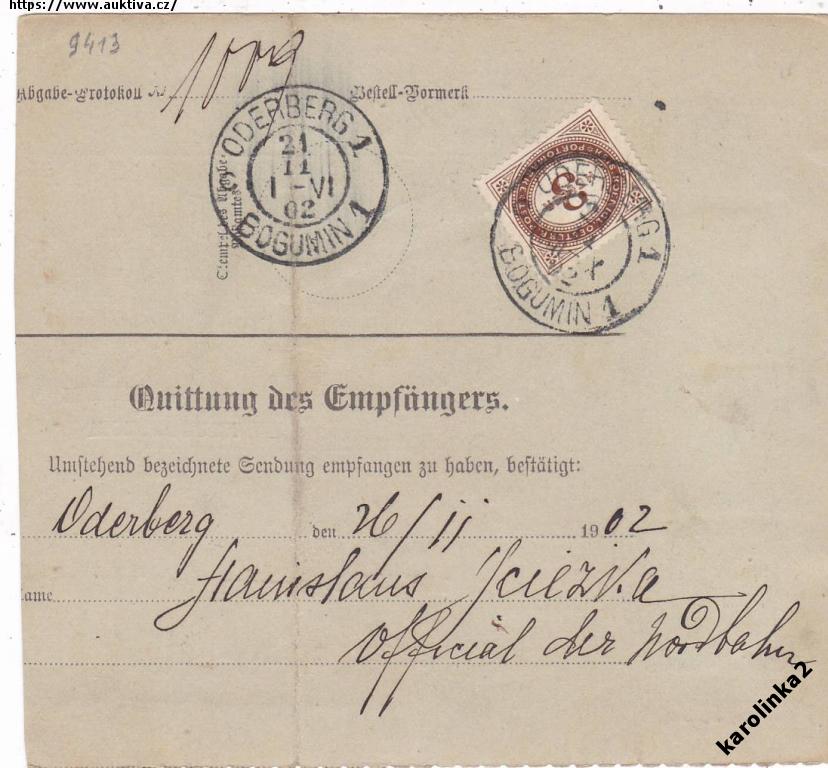 https://www.auktiva.cz/
9413
Abgabe-Protokoll № 1009 Bestell-Vormerk
ODERBERG 1
21
11
1-VI
02
BOGUMIN 1
Stempel des Abgabe-
Postamtes
8
BOGUMIN 1
Quittung des Empfängers.
Umstehend bezeichnete Sendung empfangen zu haben, bestätigt:
Oderberg den 26/11 1902
ame Stanislaus
Official der Nordbahn
karolinka2